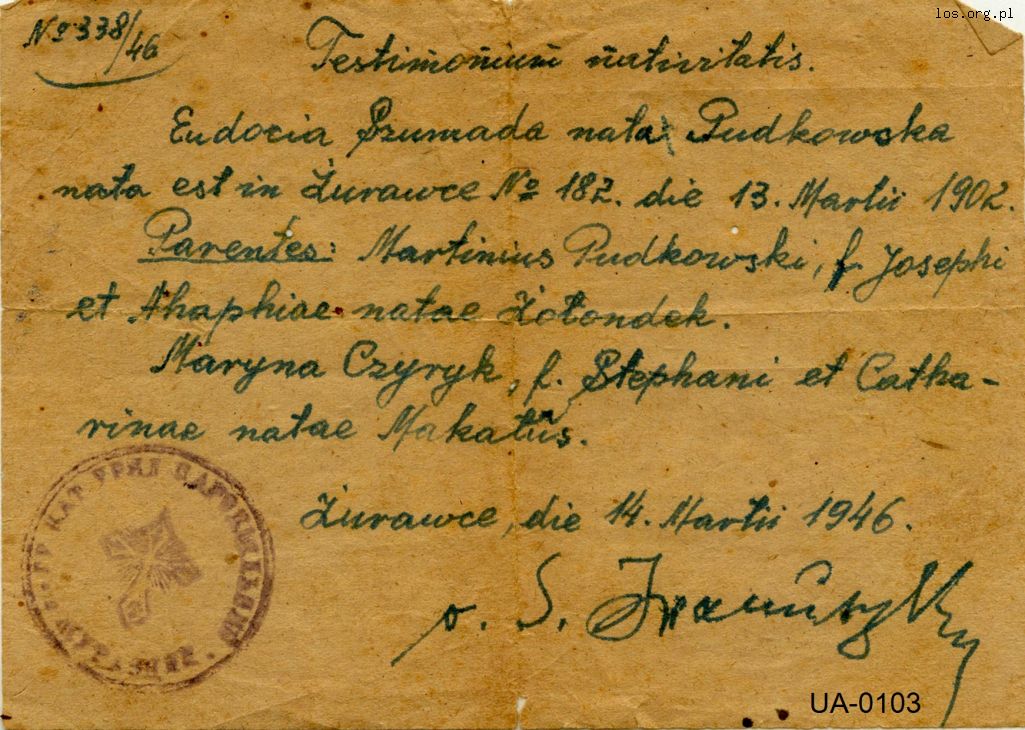 los.org.pl
No 338/46
Testimonium nativitatis.
Eudocia Szumada nata Pudkowska
nata est in Żurawce No 182. die 13. Martii 1902.
Parentes: Martinius Pudkowski, f. Josephi
et Ahaphiae natae Żołondek.
Maryna Czyryk, f. Stephani et Catha-
rinae natae Makatus.
Żurawce, die 14. Martii 1946.
o. S.
ГР. КАТ. УРЯД
UA-0103